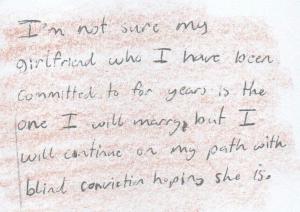 I'm not sure my
girlfriend who I have been
committed to for years is the
one I will marry, but I
will continue on my path with
blind conviction hoping she is.